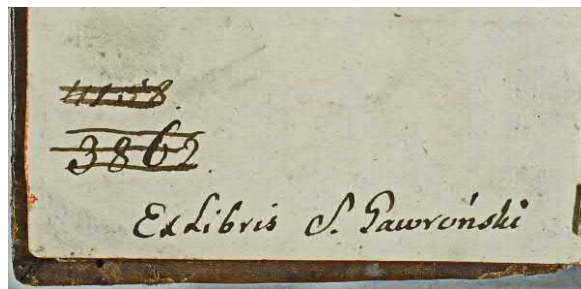 3862.
Ex Libris S. Gawroński